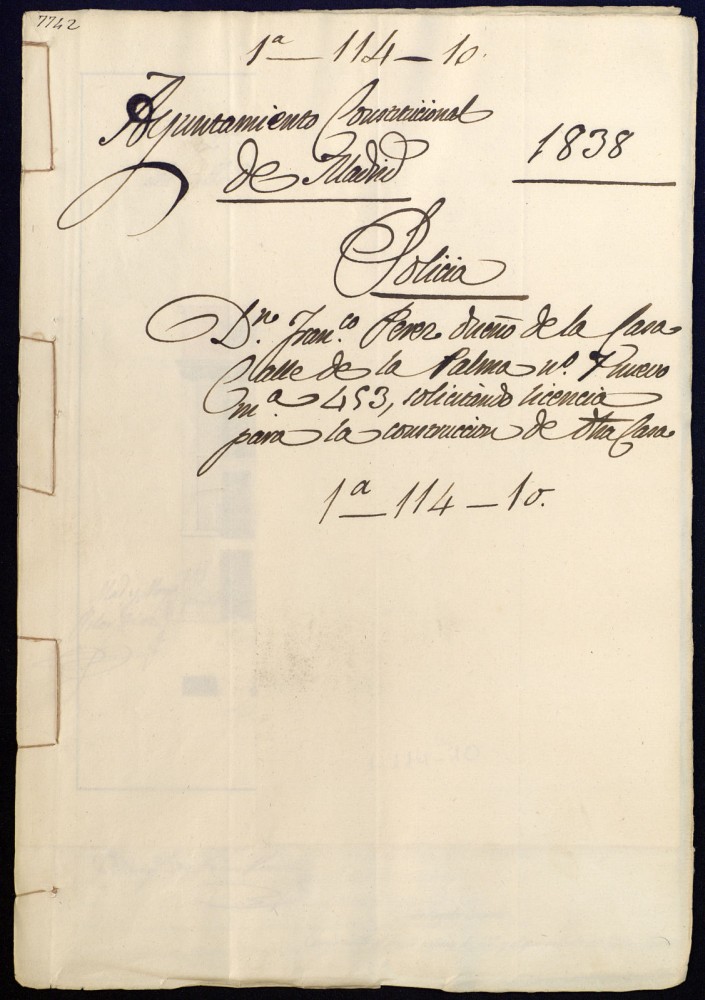 7742
1ª — 114 — 10.
Ayuntamiento Constitucional
de Madrid
1838
Policia
Dⁿ. Franᶜᵒ. Perez dueño de la Casa
Calle de la Palma nº. 7 nuevo
mª 453, solicitando licencia
para la construccion de dha Casa
1ª — 114 — 10.